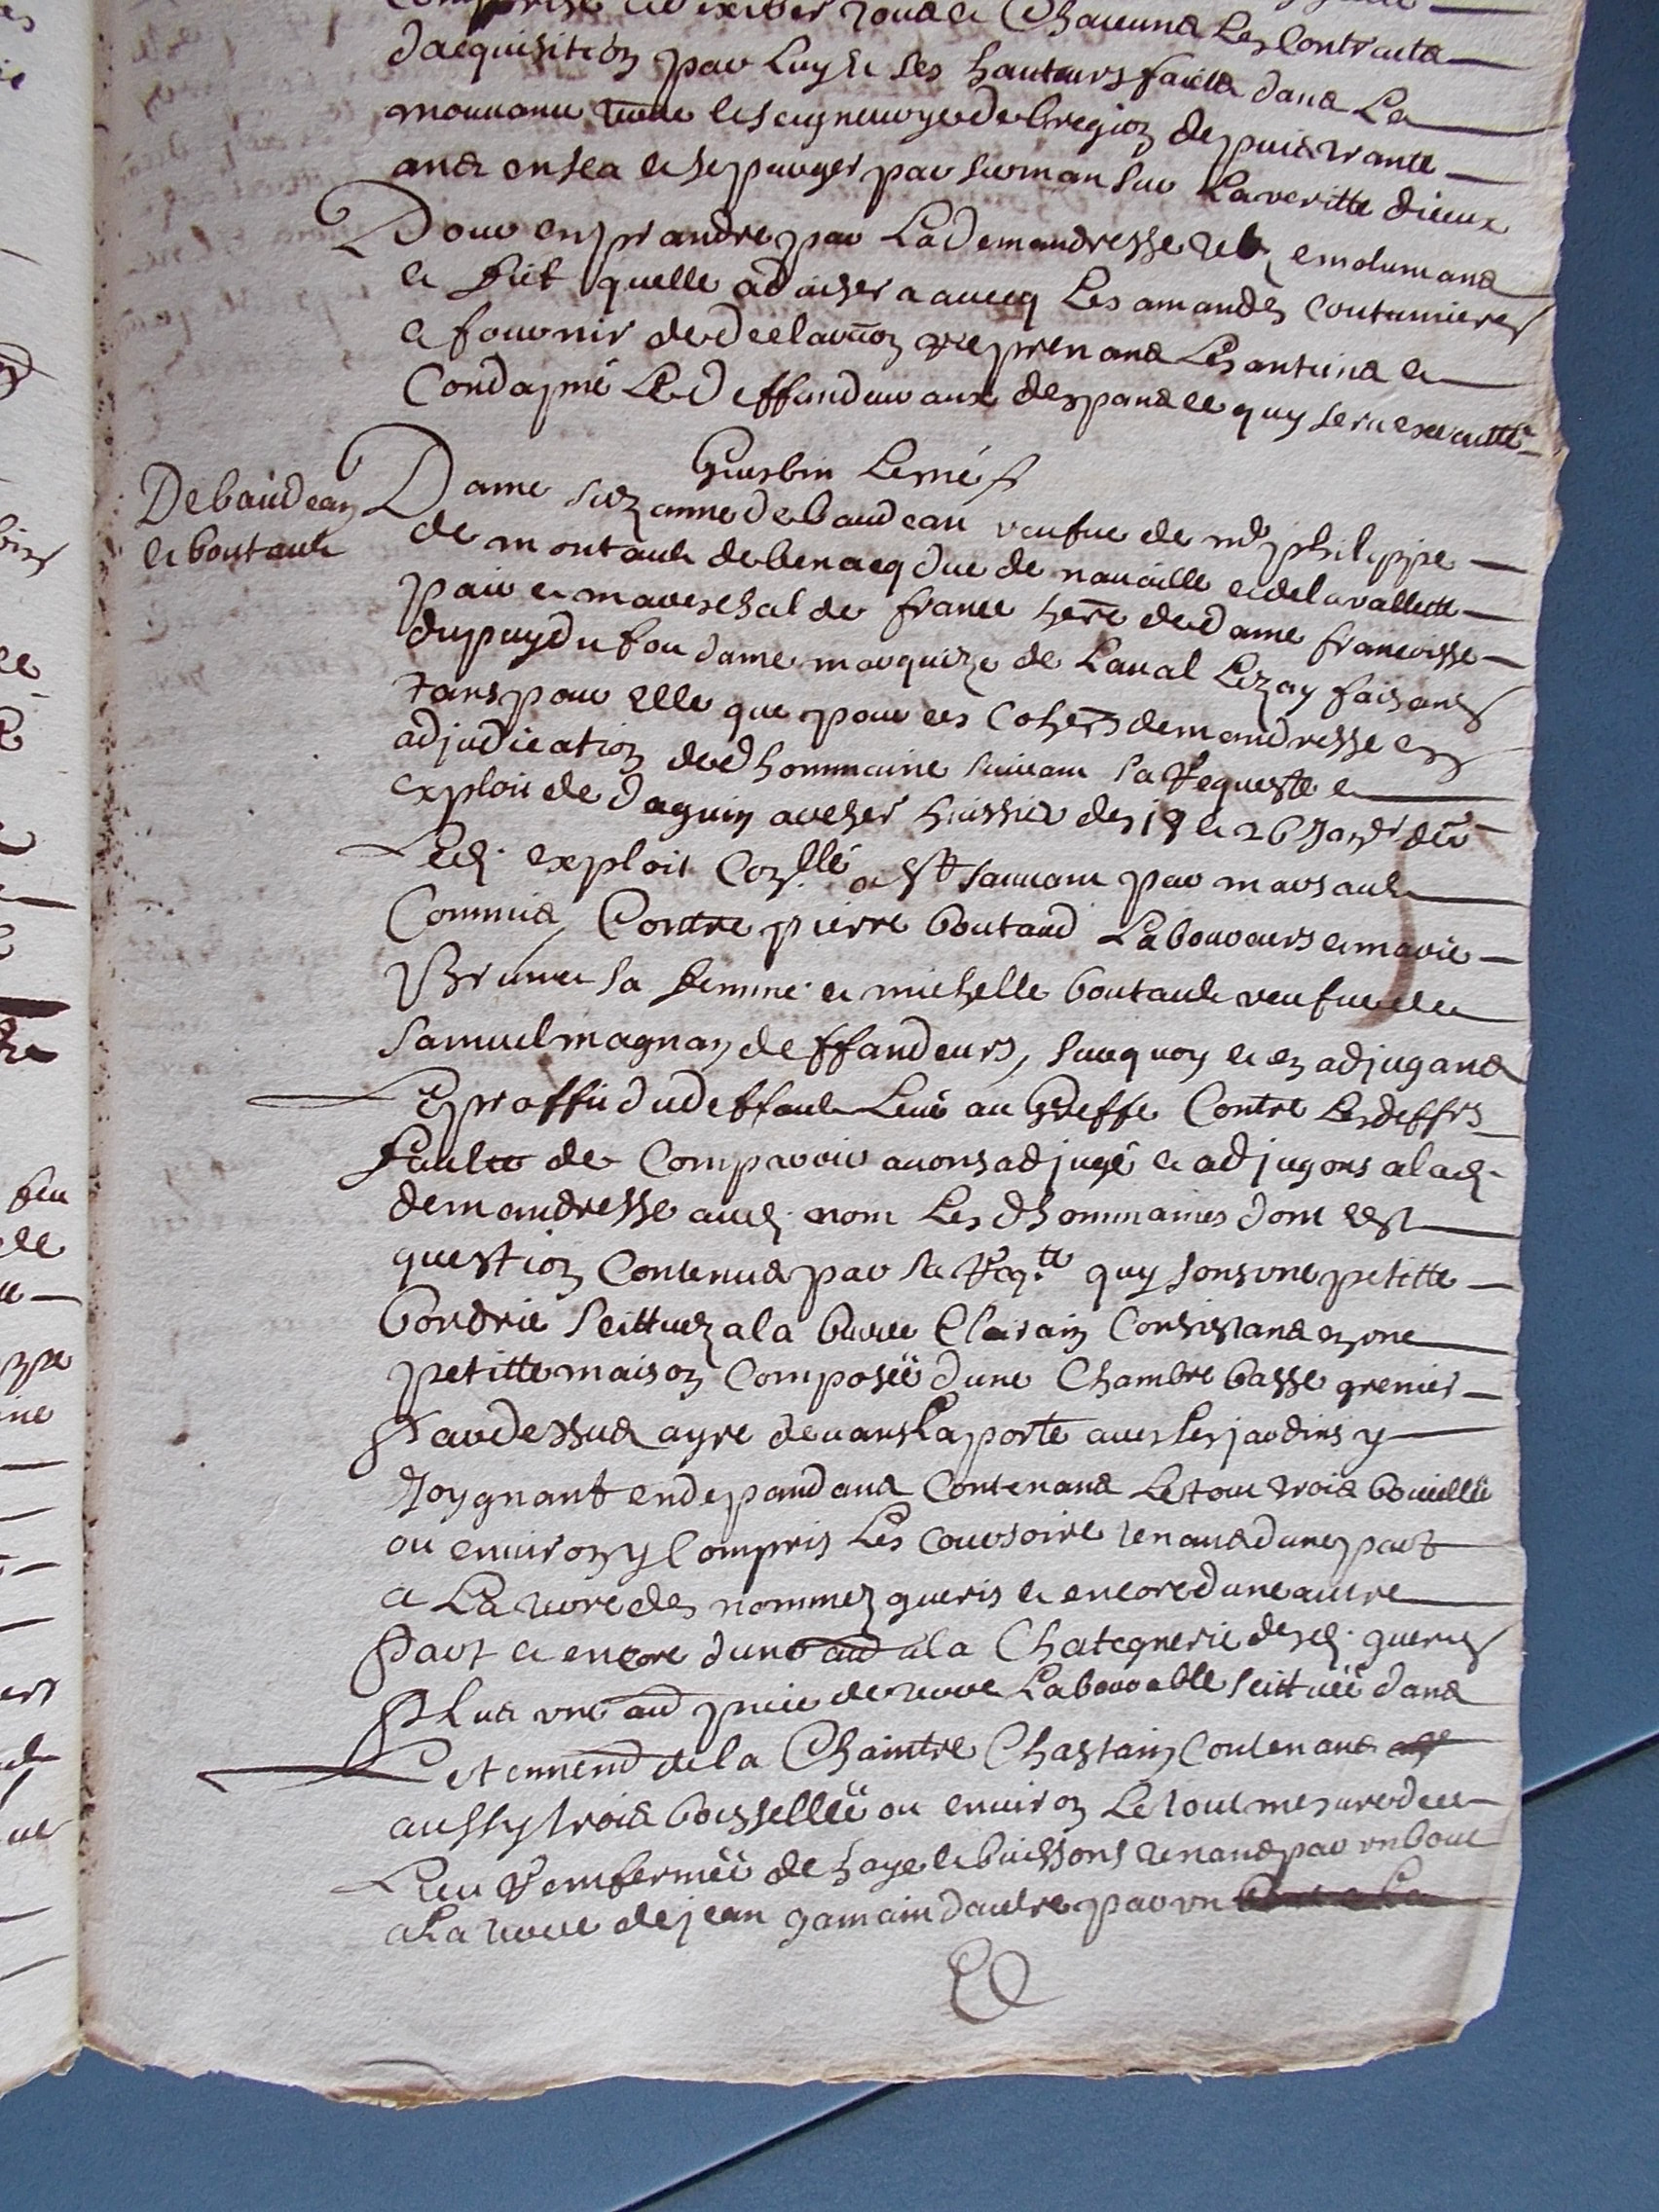 dacquisition par luy et ses hauteurs faicts dans la
ans en sea et se purger par serman sur la veritte diceux
Pour en prandre par la demandresse emolumans
et quelle advisera avecq les amandes coutumieres
et fournir de declaraon reprenans les antiens et
Condapné led deffandeur aux despans ce quy sera executté
De baudean
et boutault
Dame suzanne de baudean veufue de mre philippe
de montault de benacq duc de navaille et de lavallette
pair et mareschal de france here de dame francoisse
dupuy du fou dame marquize de Laval Lezay faisans
tans pour elle que pour ces cohers demandresse en
adjudication de dhommaine suivant sa Requeste et
exploit de daguin archer huissier des 18 et 26 Janvr der
led. exploit conllé a st sauvant par marsault
Commis, Contre pierre boutaud Laboureurs et marie
Brunet sa femme et michelle boutault veufue de
samuel magnan deffandeurs, surquoy et en adjugans
Le proffit du deffault levé au Greffe Contre les deffrs
faulte de Comparoir avons adjugé et adjugons a lad.
demandresse aud. nom les dhommaines dont est
question Contenus par sa Reqte quy sont une petitte
bordrie scittuez a la Clairain Consistans en une
petitte maison Composeé dune Chambre basse grenier
par dessus ayre devant la porte avec les jardins y
Joygnant en depandans Contenans le tout trois
ou environ y Compris les coursoire tenans dune part
a la terre des nommez gueris et encore dune autre
part et encore dune aud a la Chategnerie desd. gueris
Plus une aud piece de terre labourable scittuée dans
Le tennemd de la Chaintre Chastain Contenans
aussy trois boisselleé ou environ le tout mesure de ce
lieu Renfermeé de haye et buissons tenans par un bout
a la terre de jean gamain dautre par un